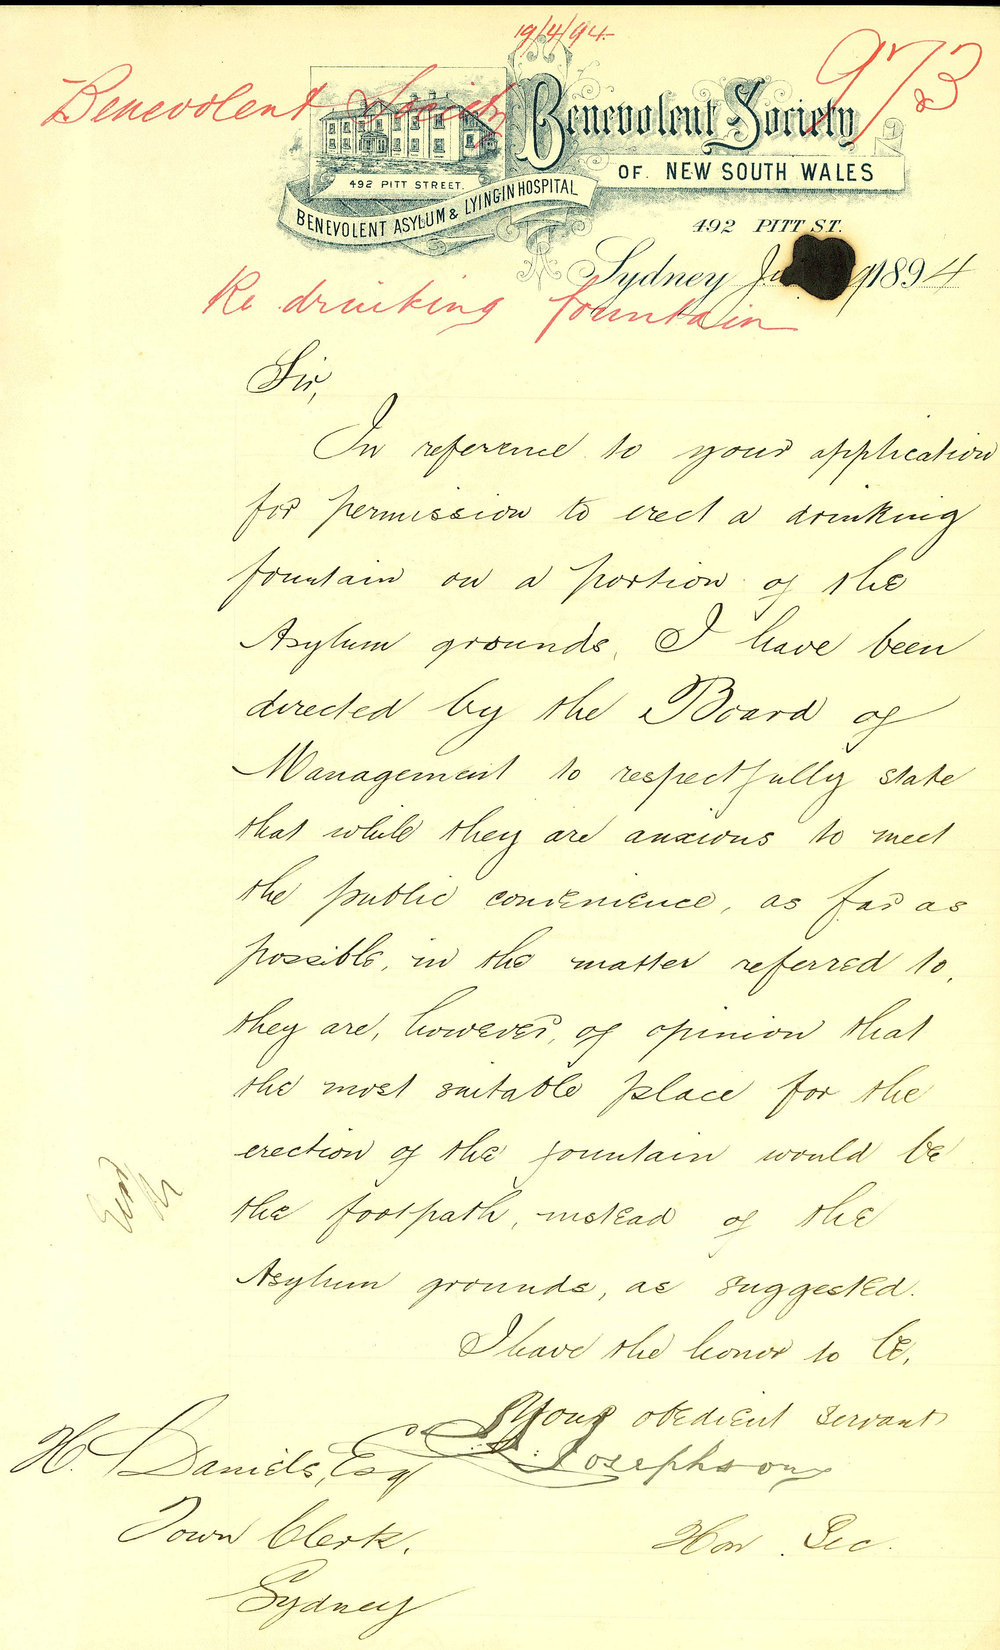 19/4/94
973
Benevolent Society
Benevolent Society
OF NEW SOUTH WALES
492 PITT STREET.
BENEVOLENT ASYLUM & LYING IN HOSPITAL
492 PITT ST.
Sydney 1894
Re drinking fountain
Sir,
In reference to your application
for permission to erect a drinking
fountain on a portion of the
Asylum grounds, I have been
directed by the Board of
Management to respectfully state
that while they are anxious to meet
the public convenience, as far as
possible, in the matter referred to,
they are, however, of opinion that
the most suitable place for the
erection of the fountain would be
the footpath, instead of the
Asylum grounds, as suggested.
I have the honor to be,
Your obedient servant
Josephson
Hon. Sec.
H. Daniels, Esq
Town Clerk.
Sydney